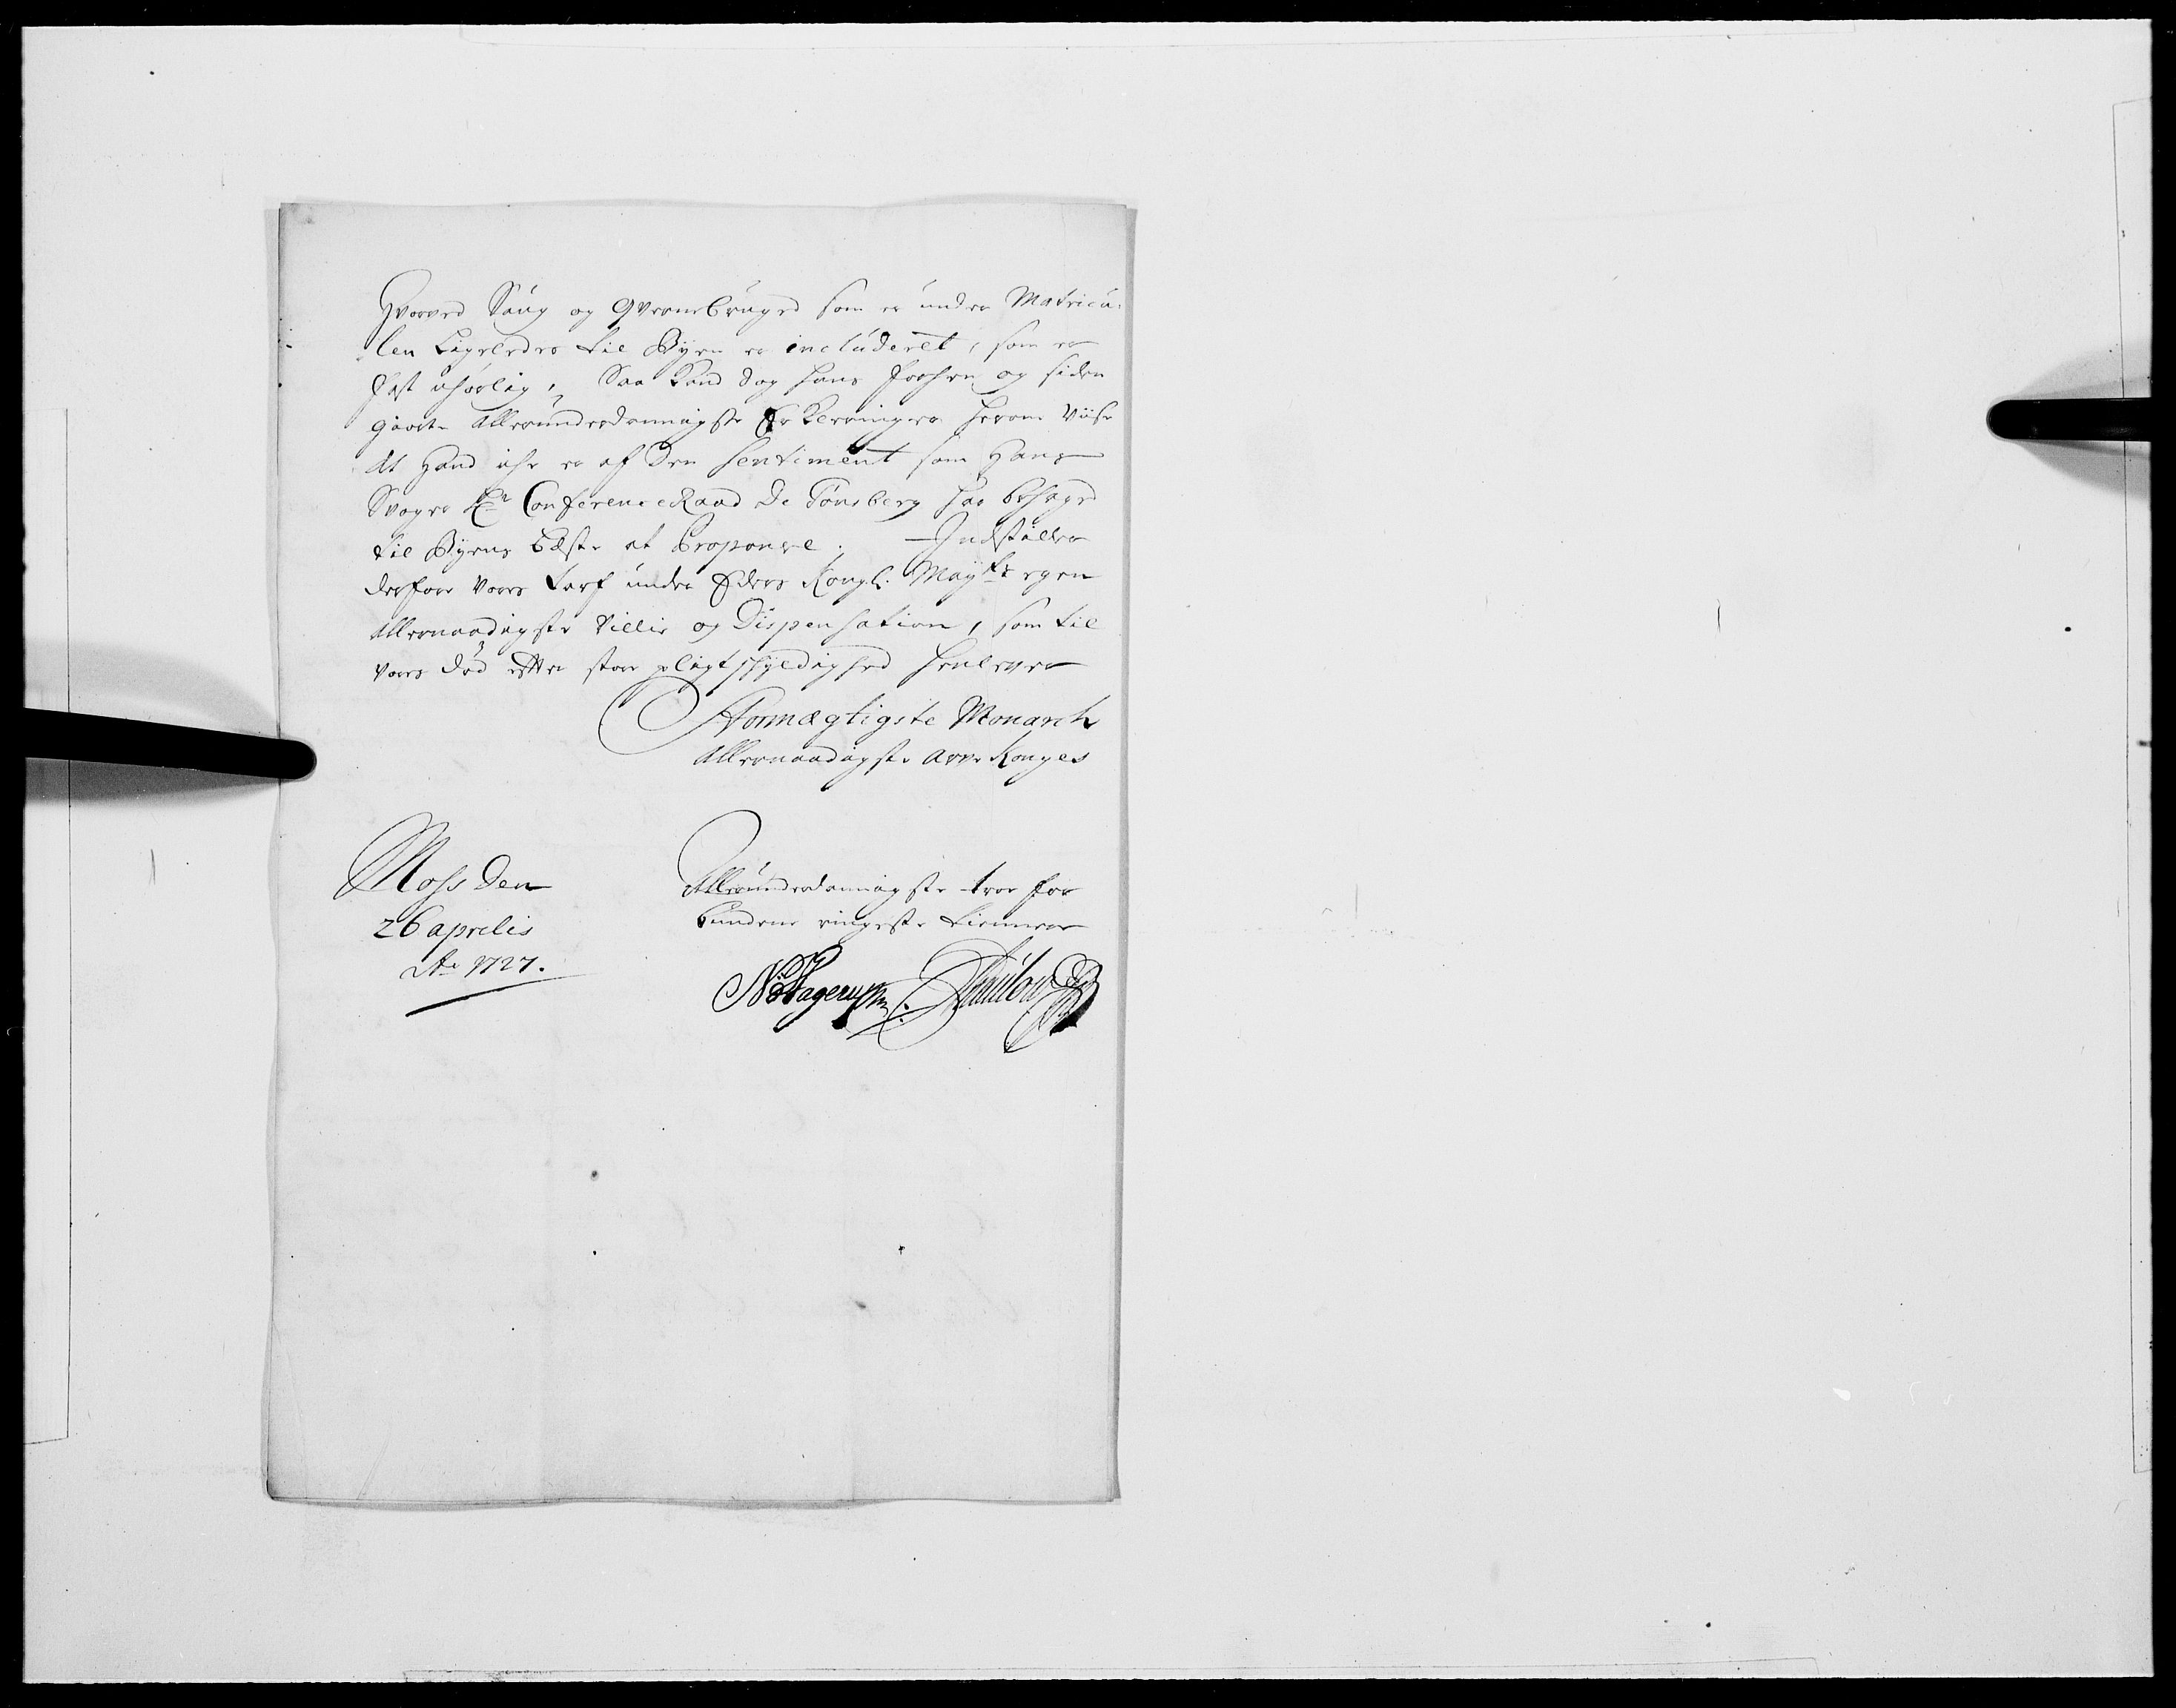 Hvorved Saug og Qvernebruged som er under Matricu-
len Ligeledes til Byen er includeret, som er
fast uhørlig, Saa kand dog hans forhen og siden
giorte Allerunderdannigste Erkleringer herom viise
at Hand iche er af den Sentiment som Hans
Svoger Hr. ConferenceRaad De Tønsberg har behaget
til Byens beste at Proponere. Indstiller
derfore voris tarf under Eders Kongl: Mayts egen
Allernaadigste Villie og Dispensation, som til
voris død etter stor pligtskyldighed henlever
Stormægtigste Monarch
Allernaadigste Arve Konges
Moss Den
26 aprelis
Ao 1727.
Allerunderdannigste troe for
bundene ringeste tiennere
N: Hagerup